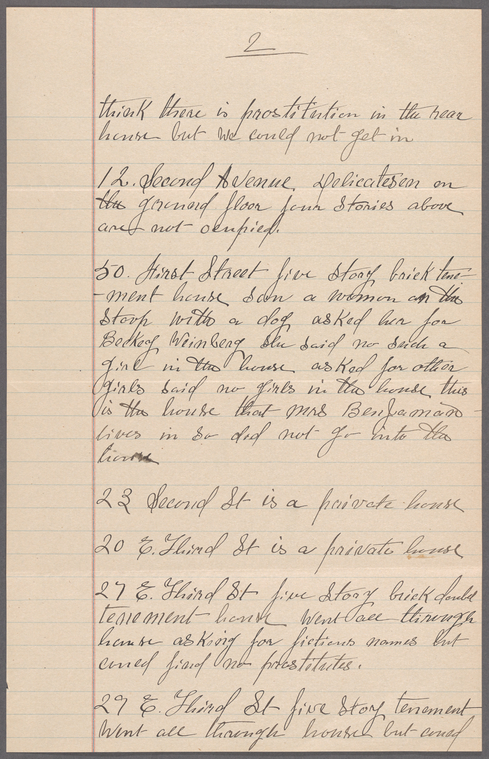 2
think there is prostitution in the rear
house but we could not get in
12. Second Avenue Delicatesen on
the ground floor four stories above
are not ocupied.
50. First Street five story brick tene-
-ment house saw a woman on the
stoop with a dog asked her for
Beckey Weinberg she said no such a
girl in the house asked for other
girls said no girls in the house this
is the house that Mrs Benjaman
lives in so did not go into the
house
23 Second St is a private house
20 E. Third St is a private house
27 E. Third St five story brick doubl
tenement house Went all through
house asking for fictious names but
coued find no prostitutes.
29 E. Third St five story tenement
Went all through house but coued